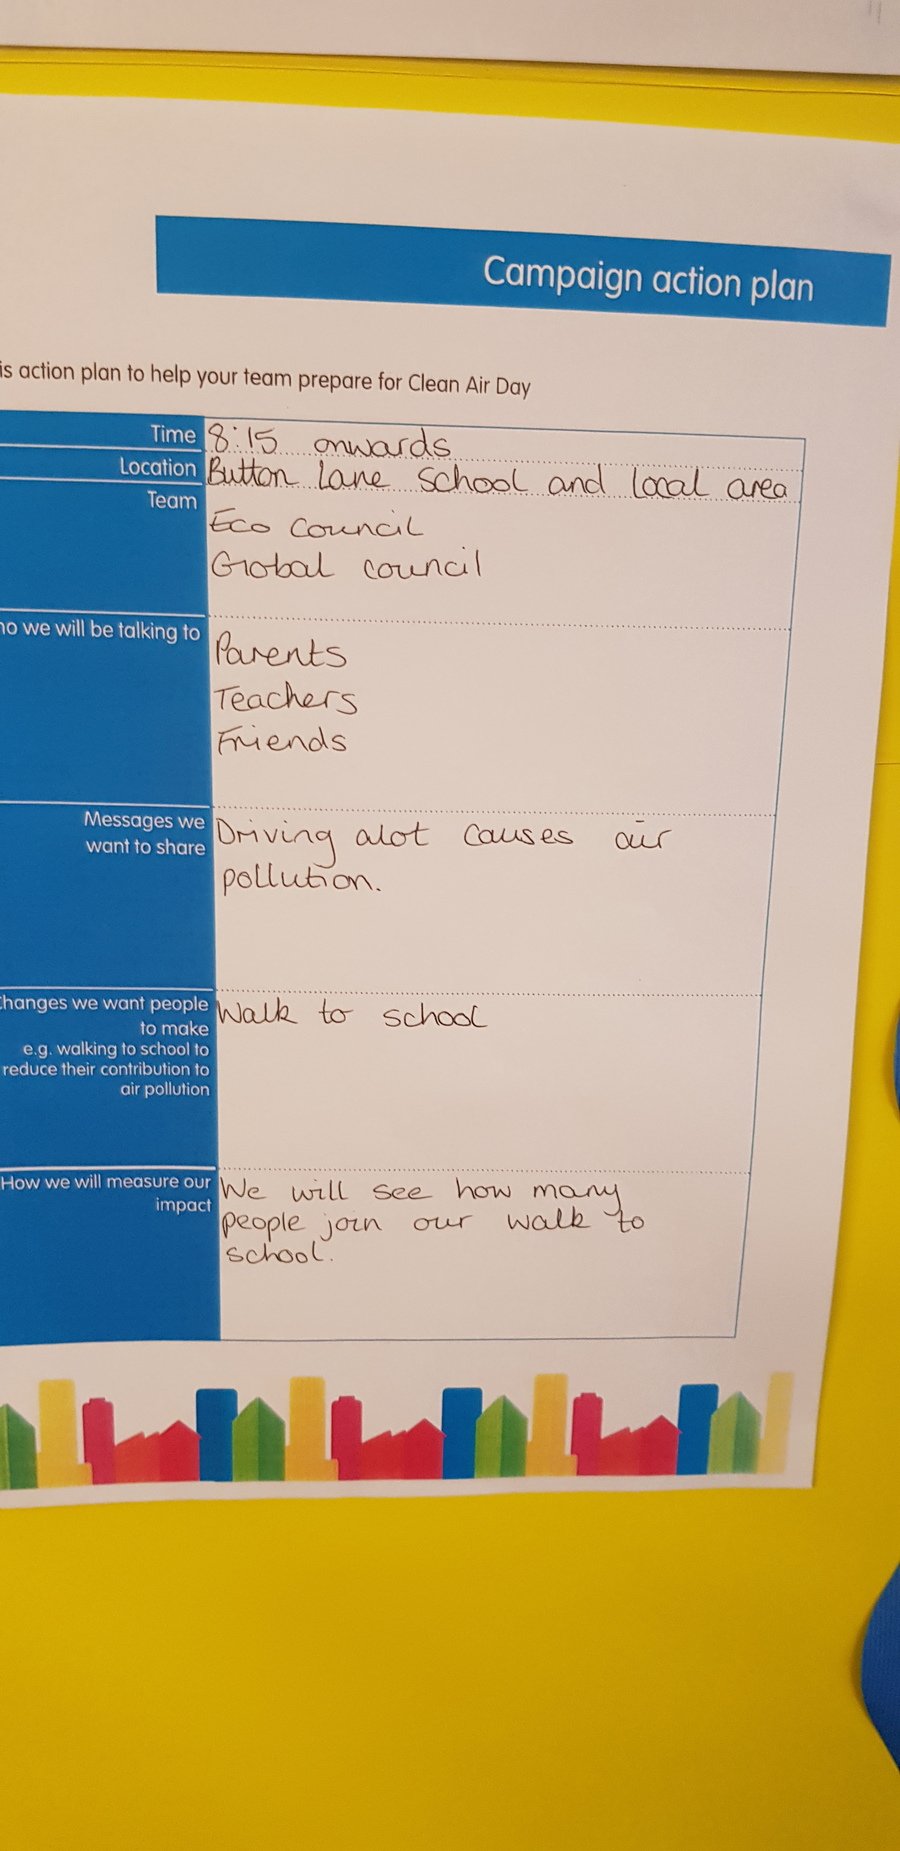 Campaign action plan
is action plan to help your team prepare for Clean Air Day
Time 8:15 onwards
Location Button Lane School and local area
Team
Eco council
Global council
we will be talking to
Parents
Teachers
Friends
Messages we
want to share
Driving alot causes air
pollution.
hanges we want people
to make
e.g. walking to school to
reduce their contribution to
air pollution
Walk to school
How we will measure our
impact
We will see how many
people join our walk to
school.